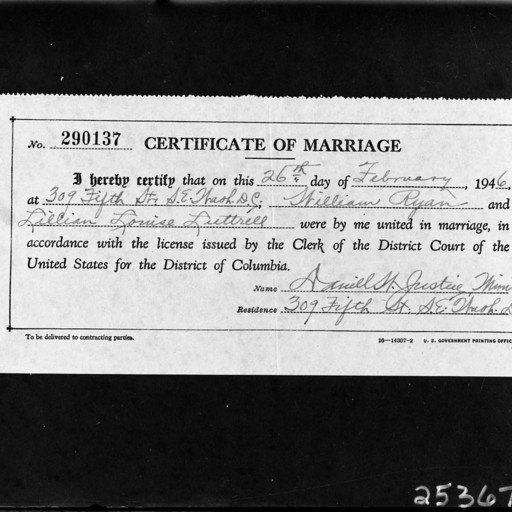 No. 290137 CERTIFICATE OF MARRIAGE
I hereby certify that on this 26th day of February, 1946,
at 309 Fifth St. S.E. Wash. D.C., William Ryan and
Lillian Louise Luttrell were by me united in marriage, in
accordance with the license issued by the Clerk of the District Court of the
United States for the District of Columbia.
Name Daniell W. Justice Min
Residence 309 Fifth St. S.E. Wash. D
To be delivered to contracting parties. 16—14307-2 U. S. GOVERNMENT PRINTING OFFIC
25367